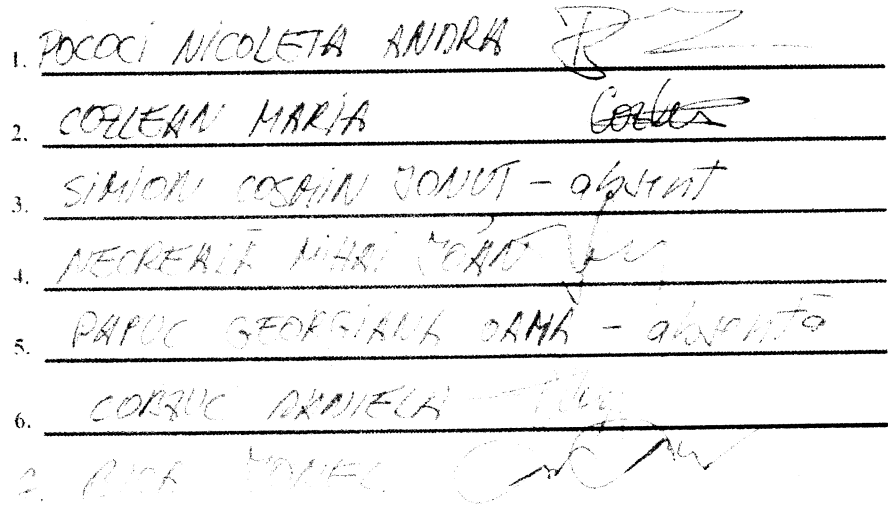 1. POCOCI NICOLETA ANDRA
2. COZLEAN MARIA
3. SIMION COSMIN IONUT - absent
4. MIHAI IOAN
5. PAPUC GEORGIANA OANA - absentă
6. DANIELA
IONEL